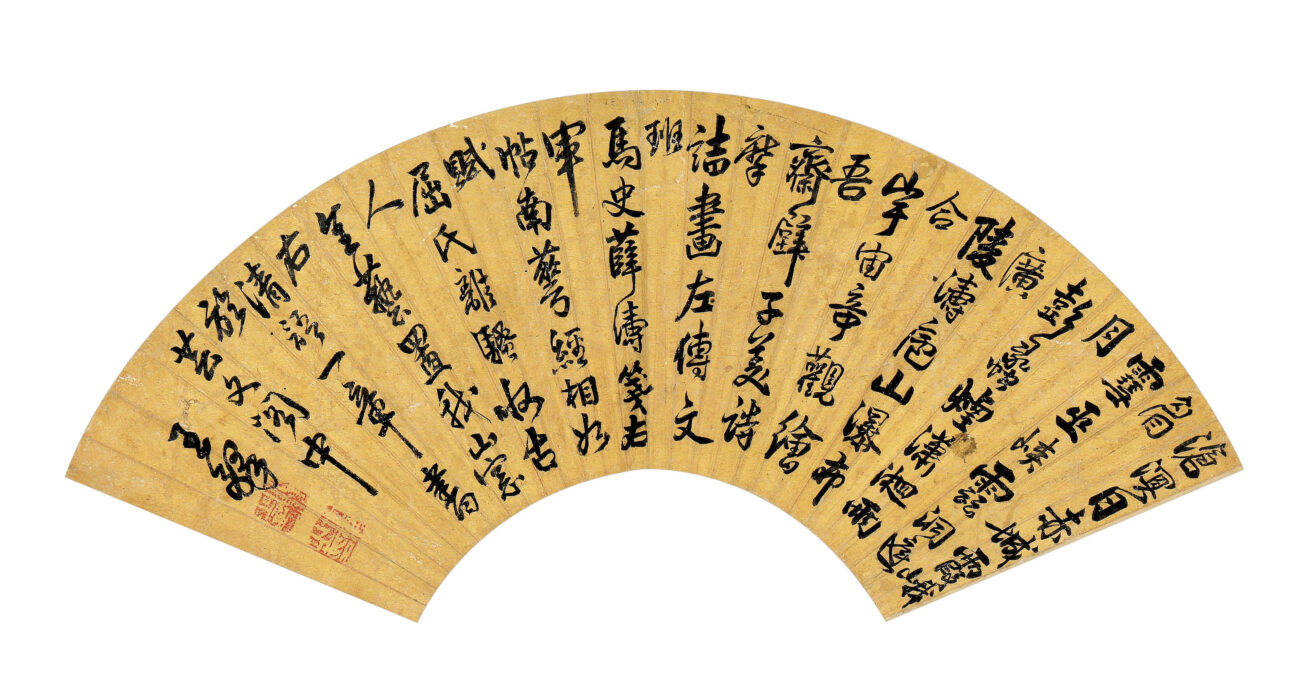 滄溟日赤城霞峨
眉
雪巫峽雲洞庭
月
彭蠡煙瀟湘雨
廣
陵濤廬山瀑布
合
宇宙奇觀繪
吾
齋壁子美詩
摩
詰畫左傳文
班
馬史薛濤箋右
軍
帖南華經相如
賦
屈氏離騷收古
人
藝置我山窗
右
清語一章書
於
芸文閣中